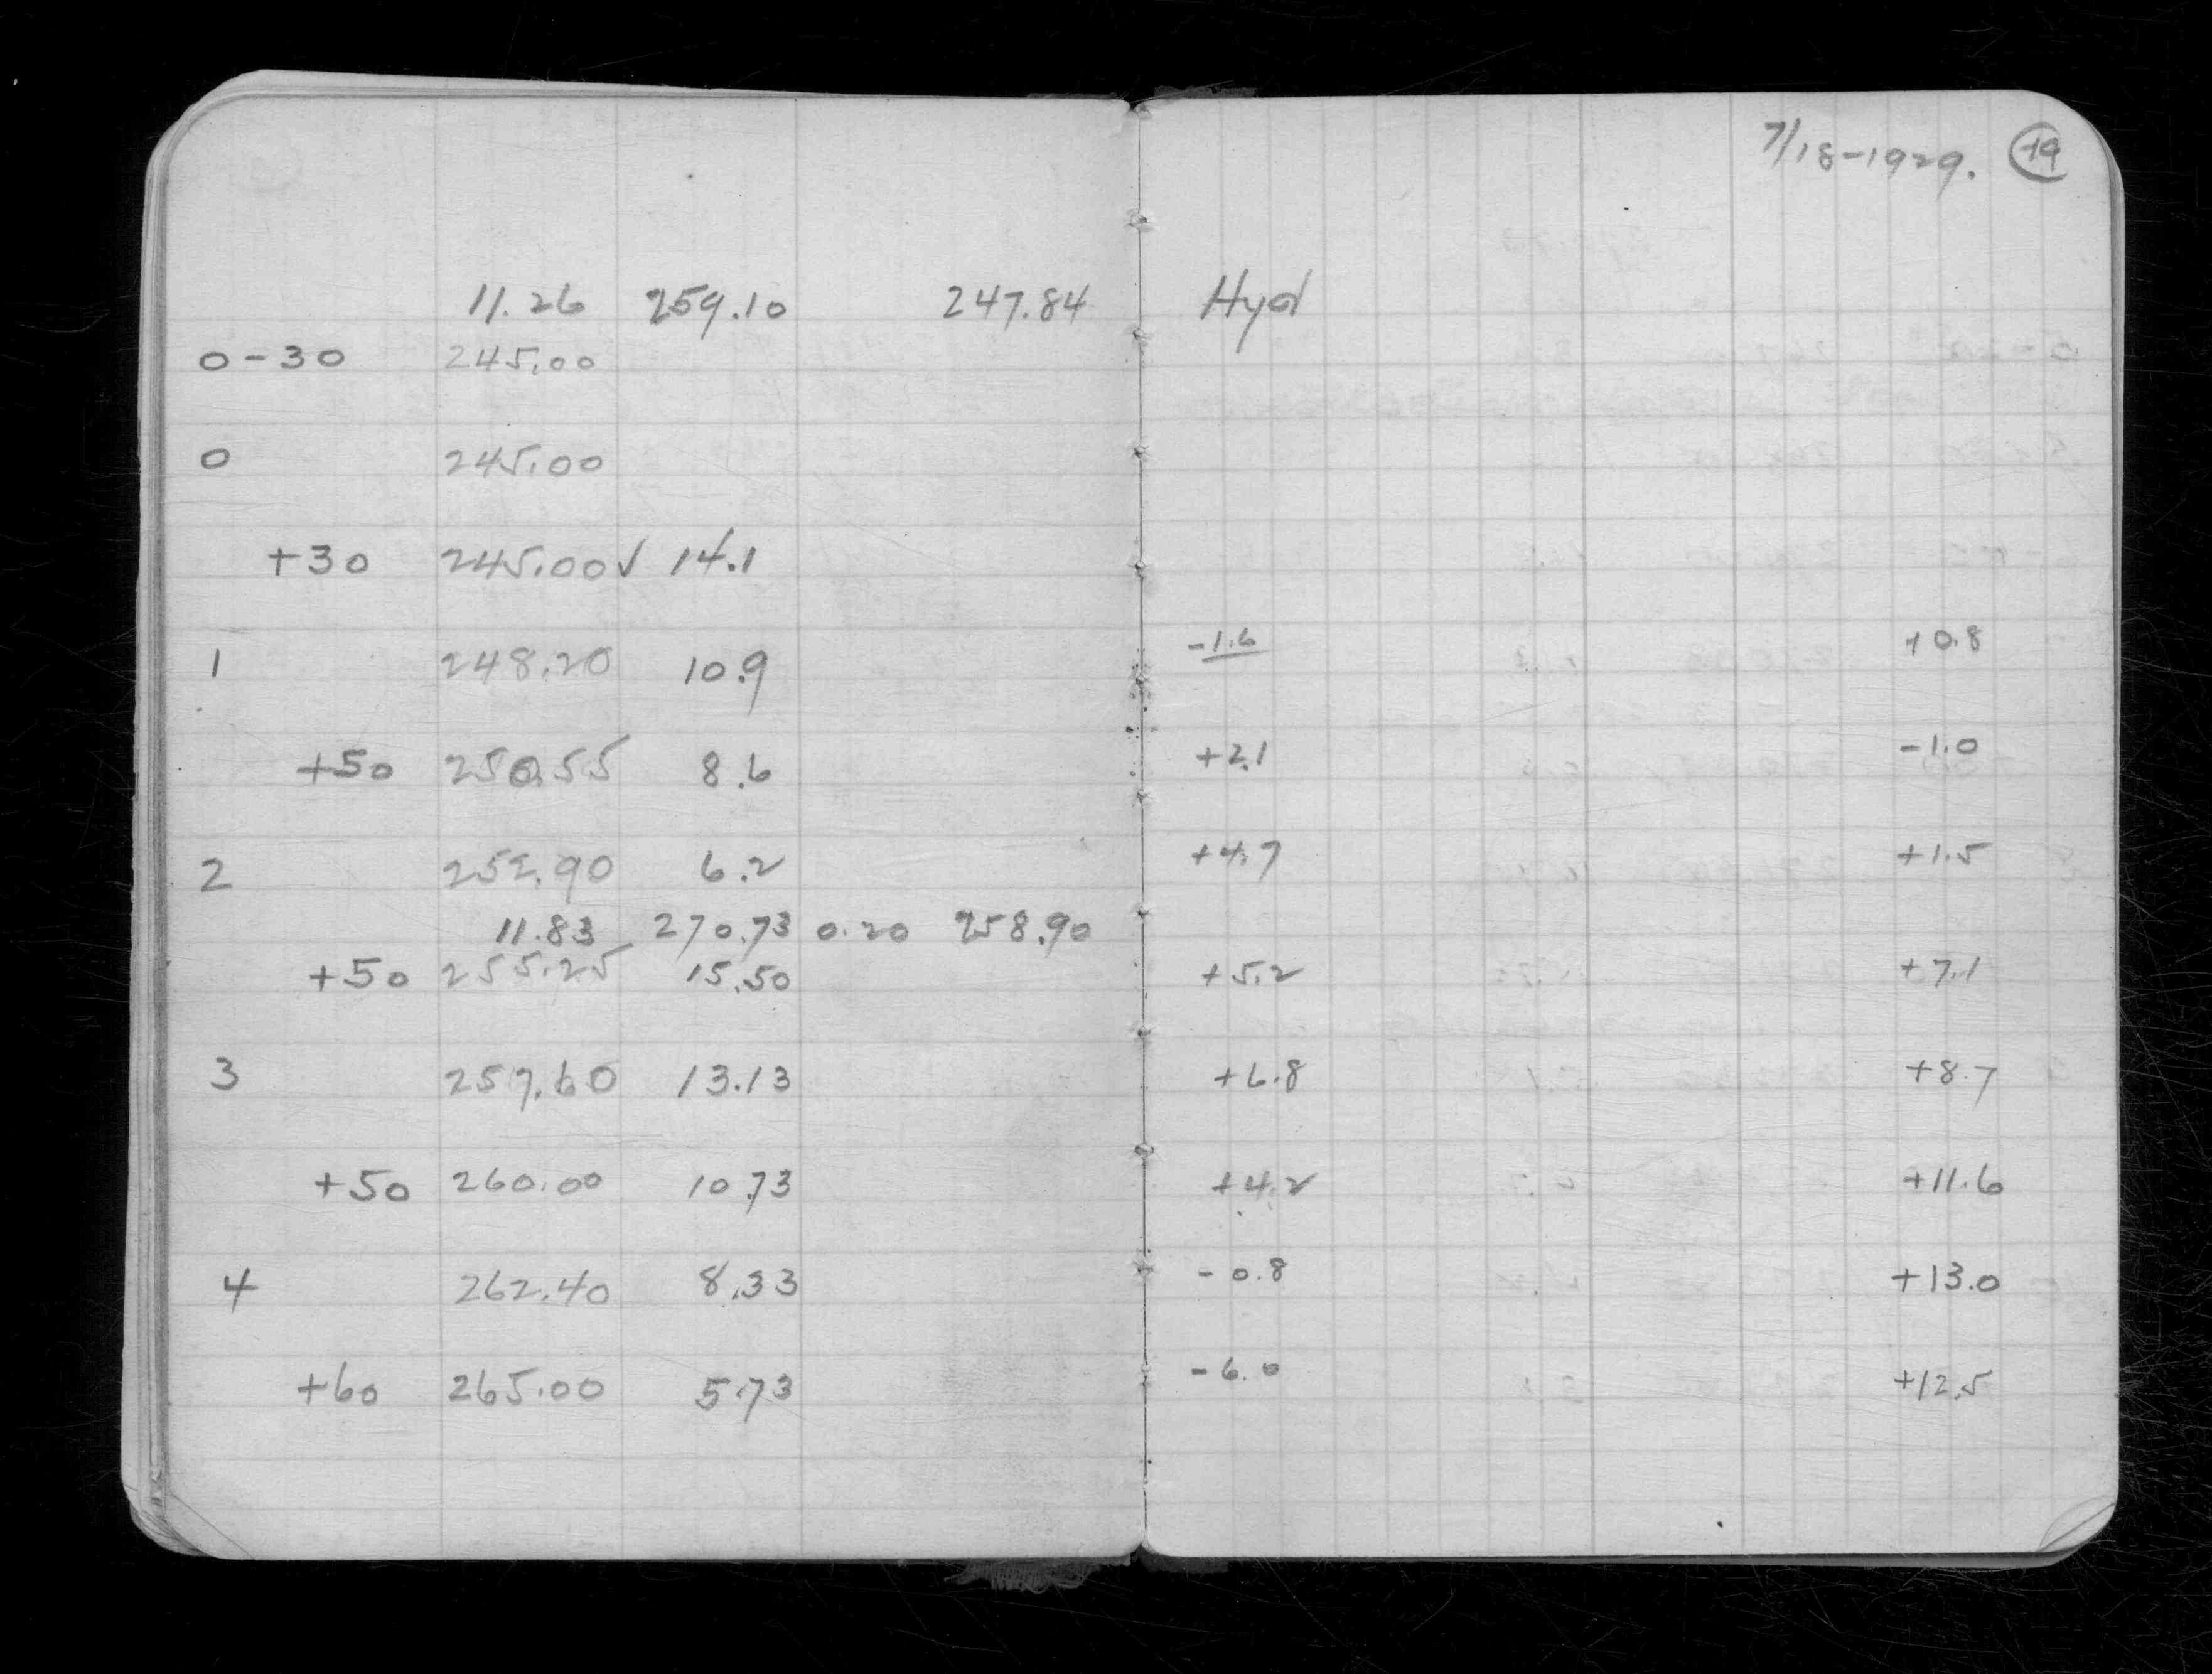 7/18-1929. 19
11.26 259.10 247.84 Hyd
0-30 245.00
0 245.00
+30 245.00✓ 14.1
1 248.20 10.9 -1.6 +0.8
+50 250.55 8.6 +2.1 -1.0
2 252.90 6.2 +4.7 +1.5
11.83 270.73 0.20 258.90
+50 255.25 15.50 +5.2 +7.1
3 257.60 13.13 +6.8 +8.7
+50 260.00 10.73 +4.2 +11.6
4 262.40 8.33 -0.8 +13.0
+60 265.00 5.73 -6.0 +12.5